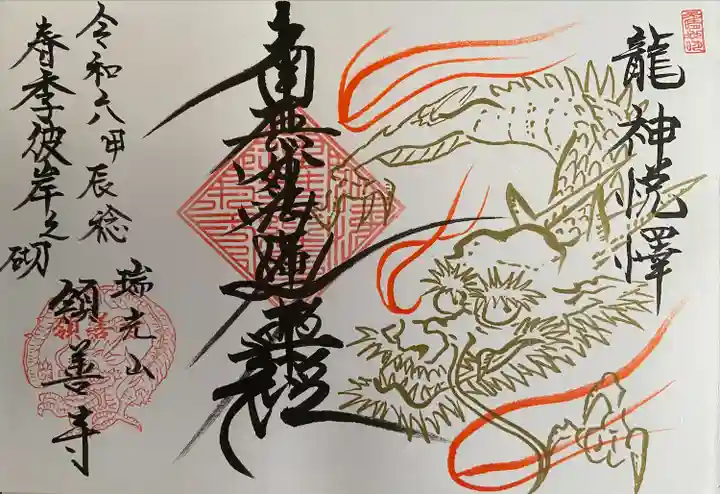 龍神悦懌
南無妙法蓮華経
令和六甲辰稔
春季彼岸之砌
瑞光山
領善寺